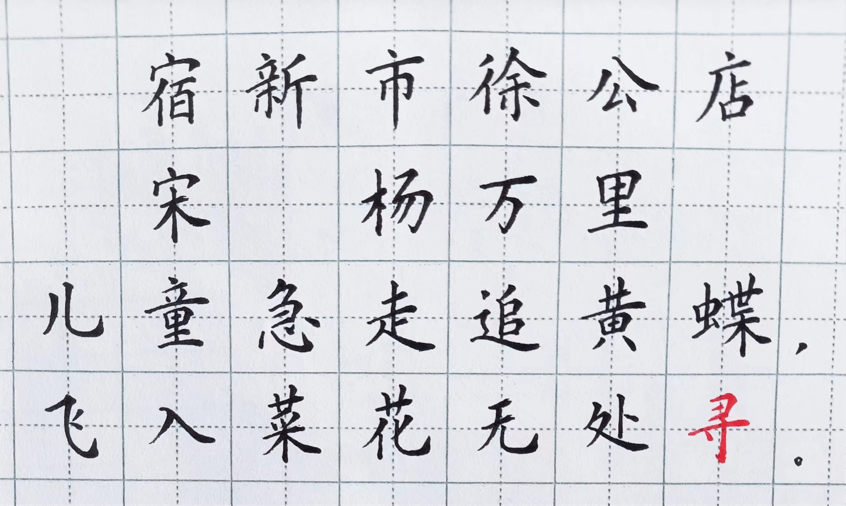 宿新市徐公店
宋 杨万里
儿童急走追黄蝶，
飞入菜花无处寻。